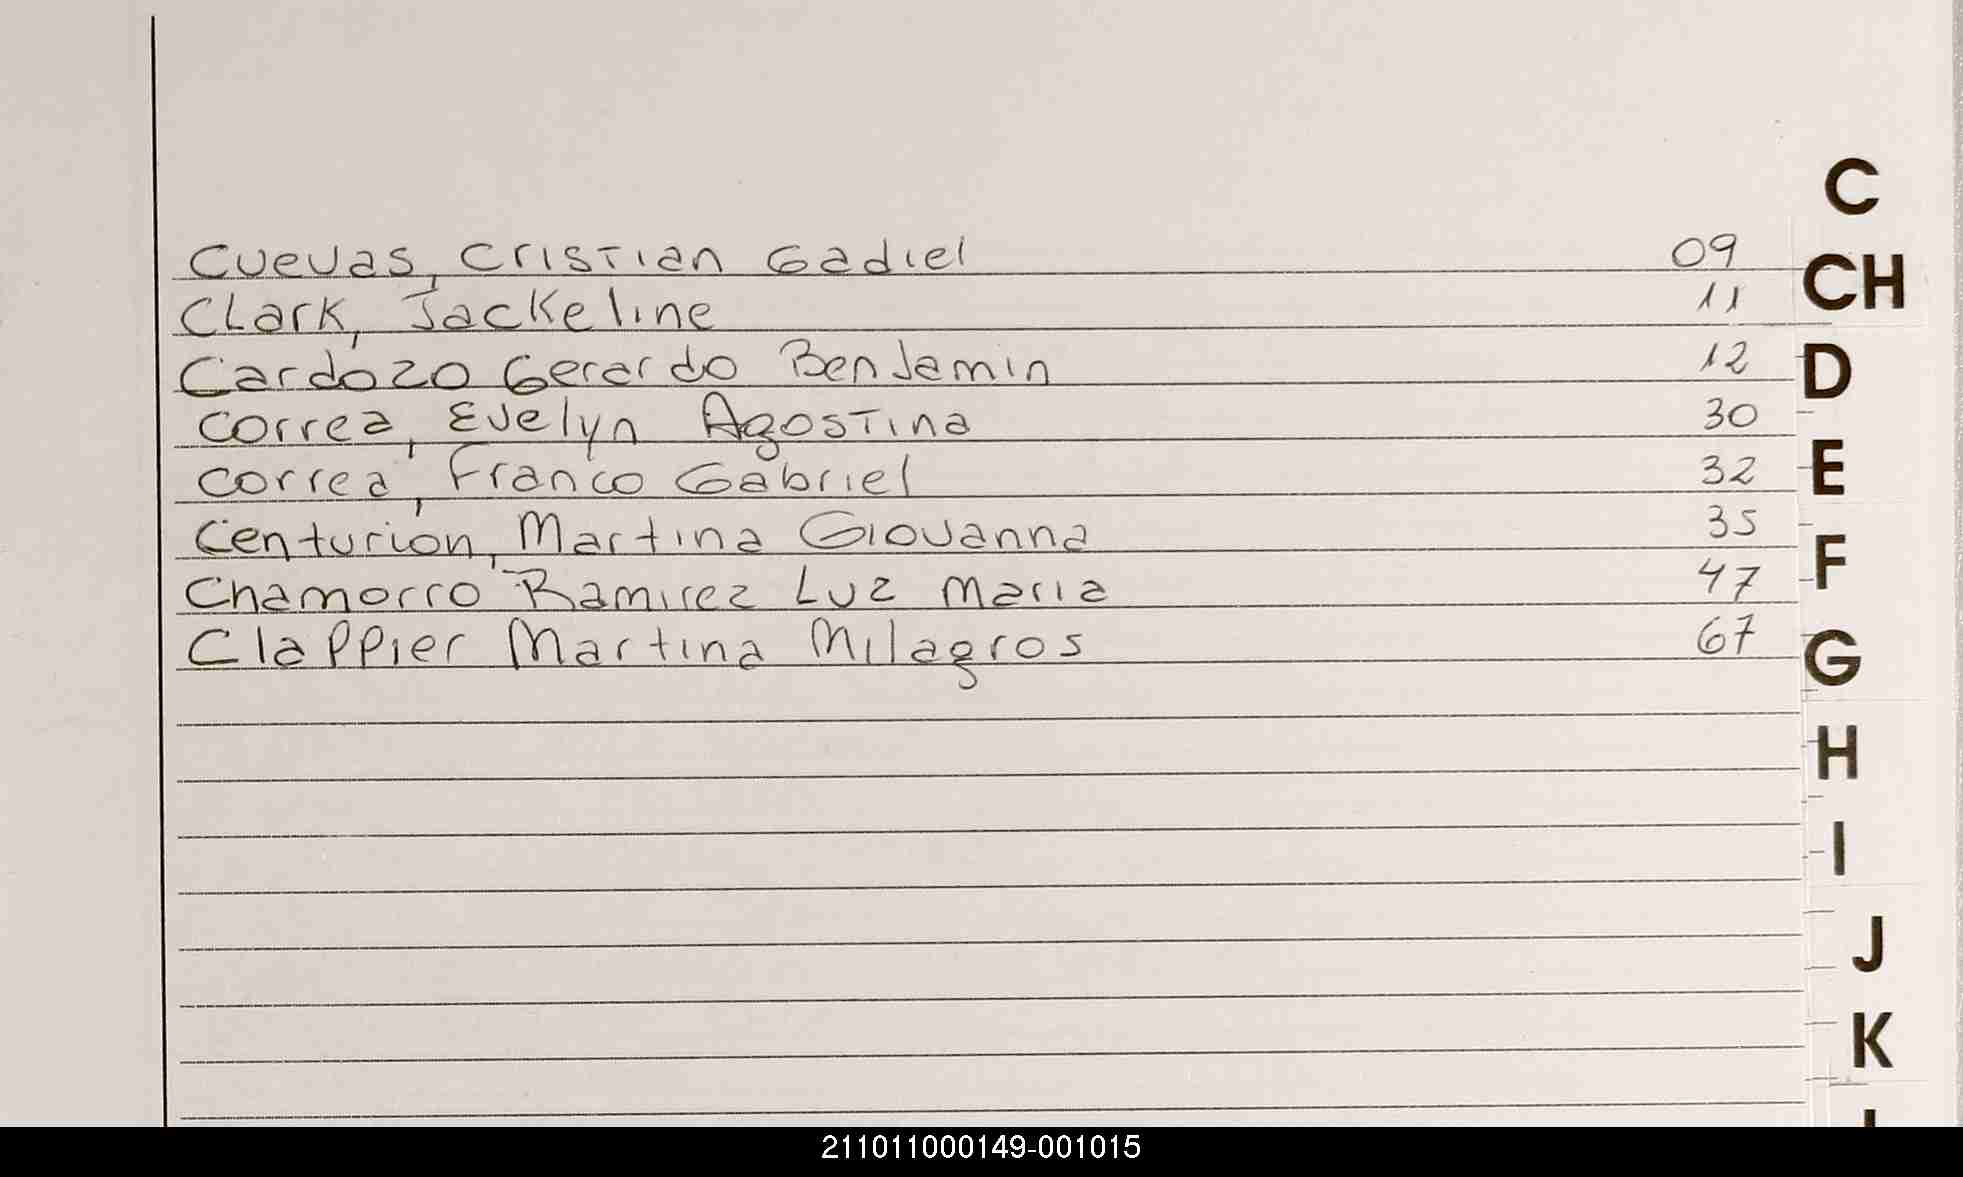 C
Cuevas, Cristian Gadiel 09
CH
Clark, Jackeline 11
Cardozo Gerardo Benjamin 12
D
Correa, Evelyn Agostina 30
Correa, Franco Gabriel 32
E
Centurión, Martina Giovanna 35
Chamorro Ramirez Luz Maria 47
F
Clappier Martina Milagros 67
G
H
I
J
K
211011000149-001015